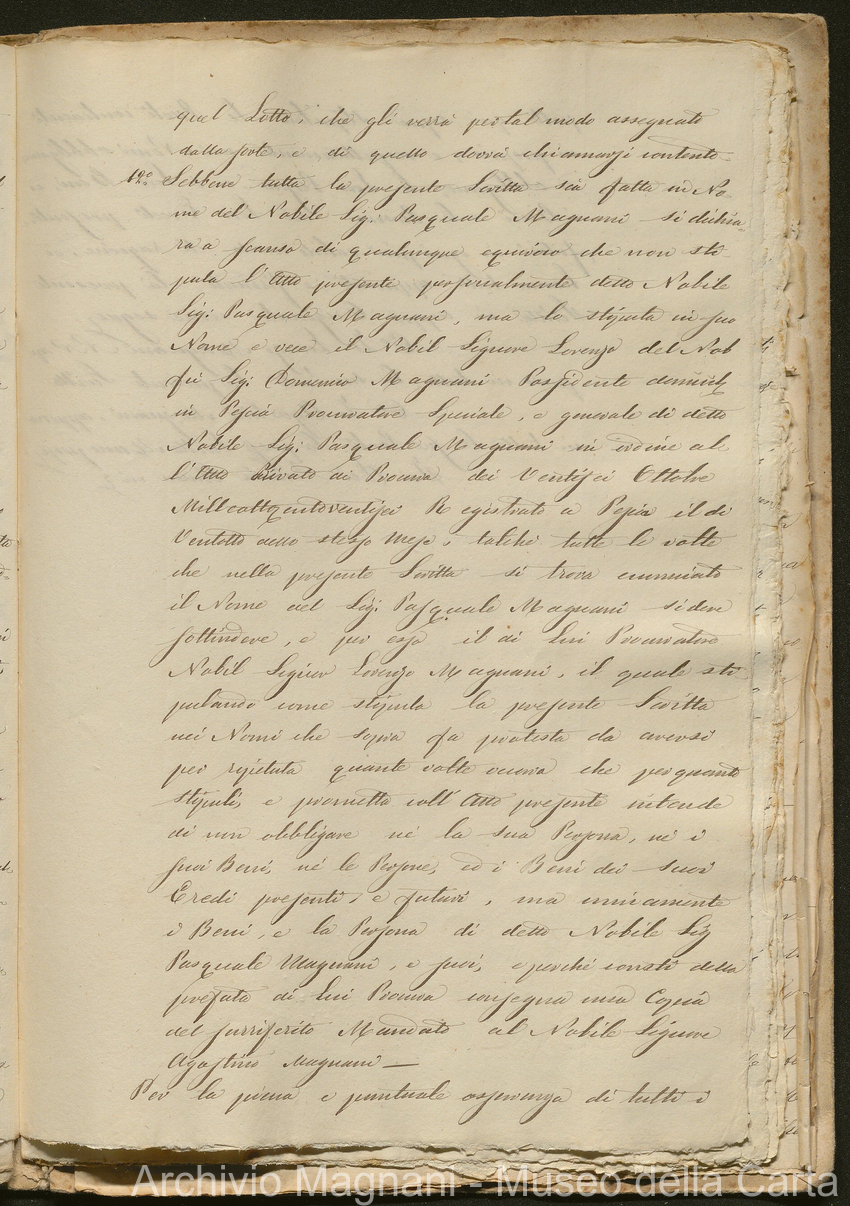 quel Lotto, che gli verrà per tal modo assegnato
dalla sorte, e di quello dovrà chiamarsi contento.
12.o Sebbene tutta la presente Scritta sia fatta in No=
me del Nobile Sig. Pasquale Magnani si dichia=
ra a scanso di qualunque equivoco che non sti=
pula l'Atto presente personalmente detto Nobile
Sig. Pasquale Magnani, ma lo stipula in suo
Nome e vece il Nobil Signore Lorenzo del Nob
fù Sig. Domenico Magnani Possidente
in Pescia Procuratore Speciale, e generale di detto
Nobile Sig. Pasquale Magnani in ordine al
l'Atto Privato di Procura dei Ventisei Ottobre
Milleottocentoventisei Registrato a Pescia il dì
Ventotto dello stesso Mese, talchè tutte le volte
che nella presente Scritta si trova enunciato
il Nome del Sig. Pasquale Magnani si deve
sottindere, e per esso il di Lui Procuratore
Nobil Signor Lorenzo Magnani, il quale sti=
pulando come stipula la presente Scritta
nei Nomi che sopra fa protesta da aversi
per ripetuta quante volte occorra che per quanto
stipuli, e prometta coll'Atto presente intende
di non obbligare nè la sua Persona, nè i
suoi Beni, nè le Persone, ed i Beni dei suoi
Eredi presenti, e futuri, ma unicamente
i Beni, e la Persona di detto Nobile Sig
Pasquale Magnani, e suoi, e perchè consti della
prefata di Lui Procura consegna una Copia
del surriferito Mandato al Nobile Signore
Agostino Magnani —
Per la piena e puntuale osservanza di tutti i
Archivio Magnani - Museo della Carta